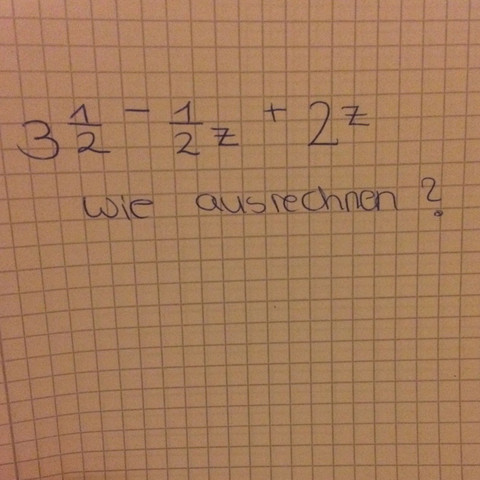 3 1/2 - 1/2 z + 2z
wie ausrechnen ?